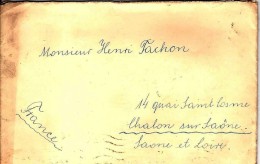 Monsieur Henri Fachon
14 quai Saint Cosme
Chalon sur Saône
Saone et Loire
France